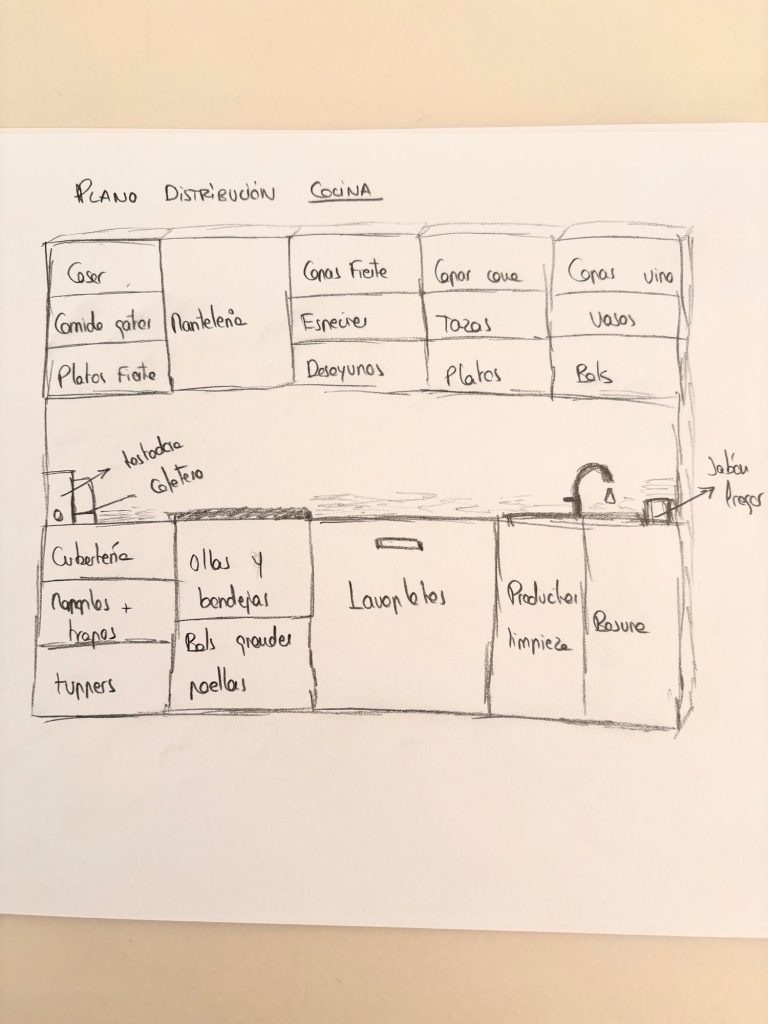 PLANO DISTRIBUCIÓN COCINA
Coser
Comida gatos
Platos Fieste
Mantelería
Copas Fieste
Especies
Desayunos
Copas cava
Tazas
Platos
Copas vino
Vasos
Bols
tostadora
Cafetera
Jabón
fregar
Cubertería
Manteles +
trapos
tuppers
Ollas y
bandejas
Bols grandes
paellas
Lavaplatos
Productos
limpieza
Basura